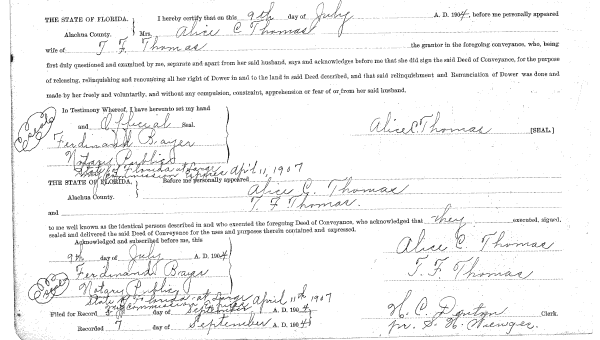 THE STATE OF FLORIDA, I hereby certify that on this 9th day of July A. D. 1904, before me personally appeared
Alachua County. Mrs. Alice C Thomas
wife of T. F. Thomas the grantor in the foregoing conveyance, who, being
first duly questioned and examined by me, separate and apart from her said husband, says and acknowledges before me that she did sign the said Deed of Conveyance, for the purpose
of releasing, relinquishing and renouncing all her right of Dower in and to the land in said Deed described, and that said relinquishment and Renunciation of Dower was done and
made by her freely and voluntarily, and without any compulsion, constraint, apprehension or fear of or from her said husband.
In Testimony Whereof, I have hereunto set my hand
and Official Seal.
Alice C. Thomas [SEAL.]
Ferdinand Bayer
Notary Public
State of Florida at Large
My Commission expires April 11, 1907
THE STATE OF FLORIDA, Before me personally appeared Alice C. Thomas
Alachua County.
and T. F. Thomas.
to me well known as the identical persons described in and who executed the foregoing Deed of Conveyance, who acknowledged that they executed, signed,
sealed and delivered the said Deed of Conveyance for the uses and purposes therein contained and expressed.
Acknowledged and subscribed before me, this
9th day of July A. D. 1904
Alice C Thomas
Ferdinand Bayer
T. F. Thomas
Notary Public
State of Florida at Large
My Commission expires April 11th 1907
Filed for Record day of September A. D. 1904
H. C. Denton Clerk.
Recorded 7 day of September A. D. 1904
pr. S. H. Wienges